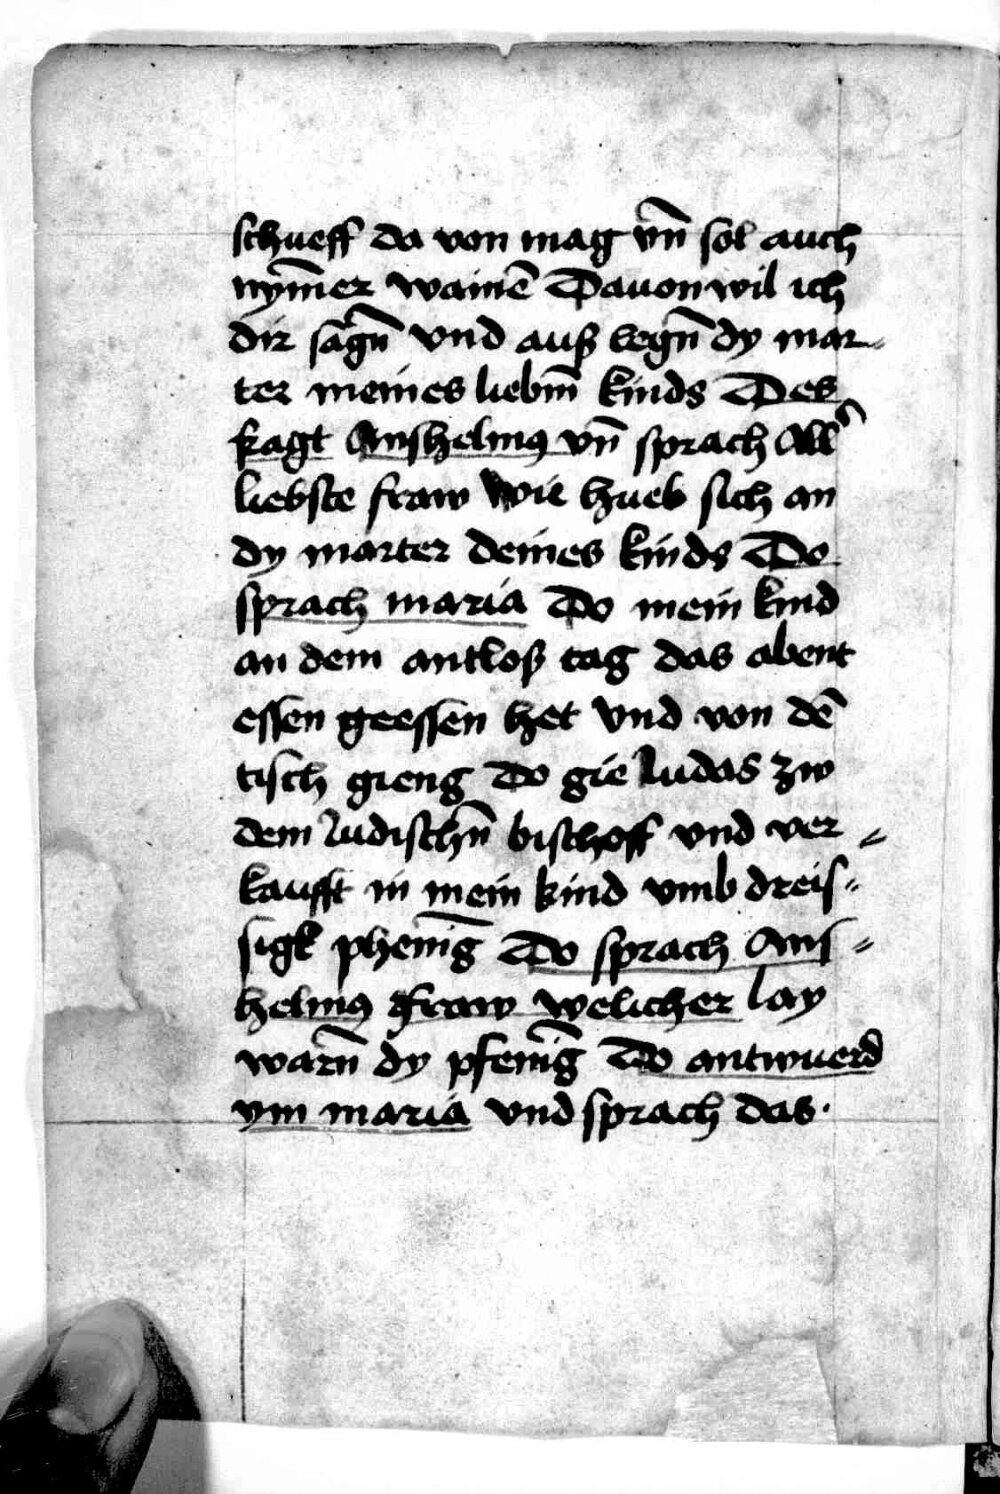 schueff da von mag vn̄ sol auch
nym̄er wainē Dauon wil ich
dir sagn̄ vnd auß legn̄ dy mar-
ter meines liebm̄ kinds Des
fragt Anshelmus vn̄ sprach All
liebste fraw wie hueb sich an
dy marter deines kinds Do
sprach maria Do mein kind
an dem antloß tag das abent
essen geessen het vnd von dē
tisch gieng Do gie Judas zw
dem Judischn̄ bischoff vnd ver-
kaufft in mein kind vmb dreis-
sigk phenīg Do sprach Ans-
helmus fraw welicher lay
warn̄ dy pfenīg Do antwuerd
ym maria vnd sprach das·